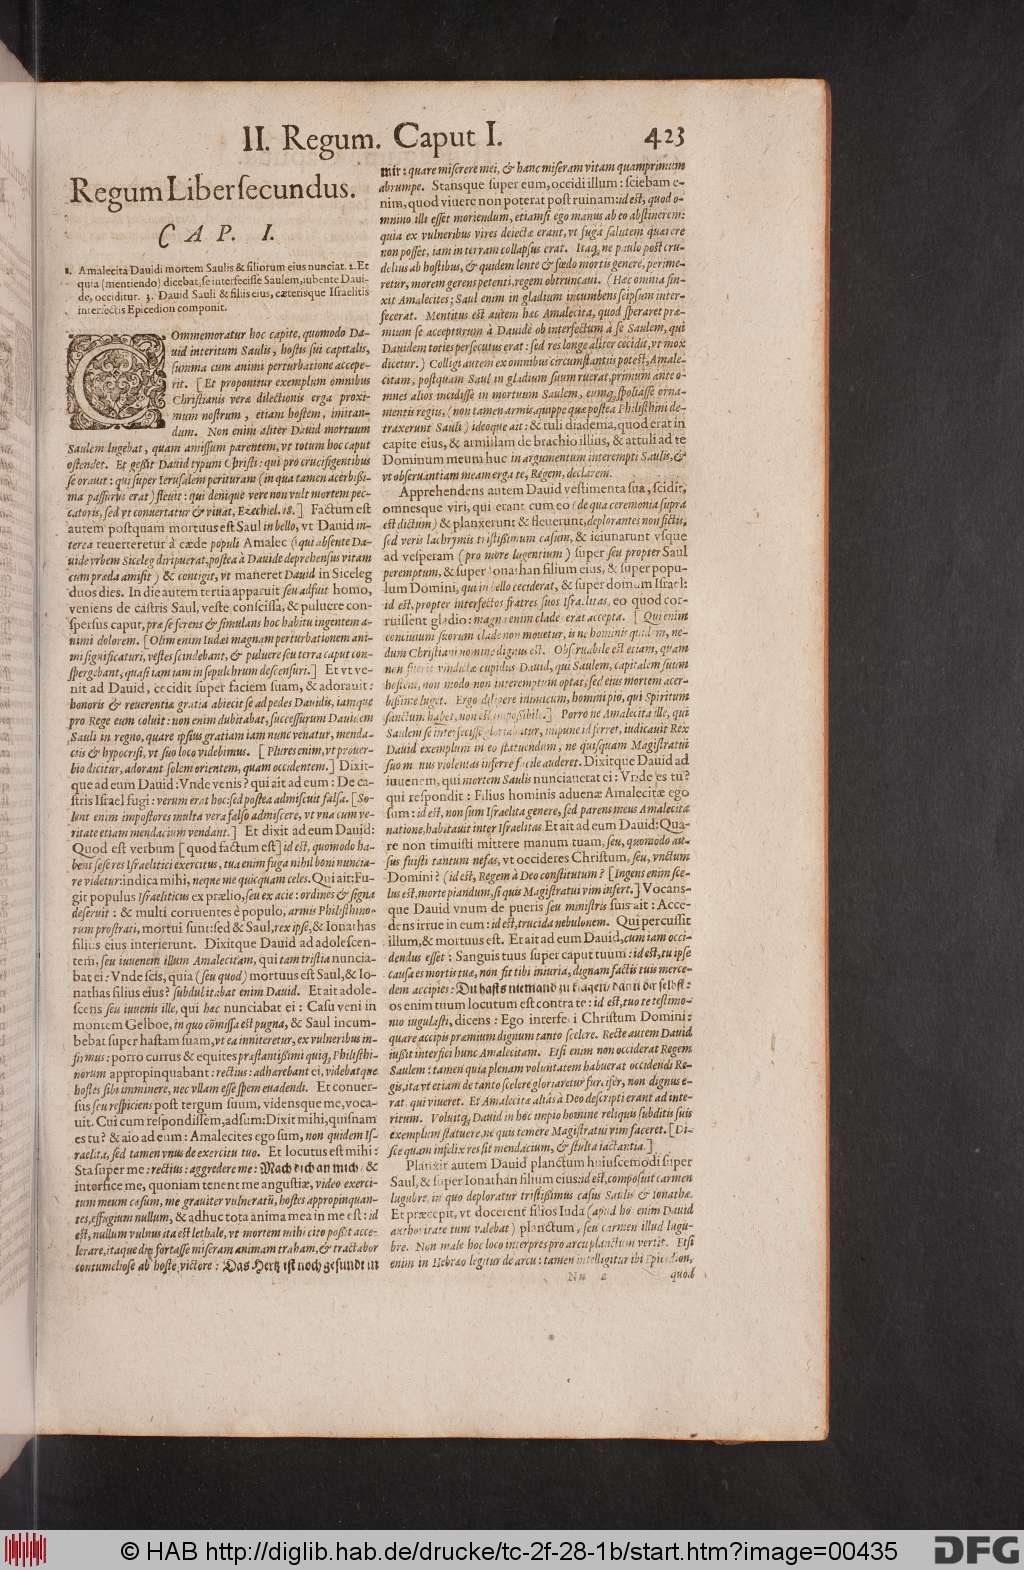 II. Regum. Caput I. 423
Regum Liber secundus.
CAP. I.
1. Amalecita Dauidi mortem Saulis & filiorum eius nunciat. 2. Et
quia (mentiendo) dicebat, se interfecisse Saulem, iubente Daui-
de, occiditur. 3. Dauid Sauli & filiis eius, cæterisque Israelitis
interfectis Epicedion componit.
COmmemoratur hoc capite, quomodo Da-
uid interitum Saulis, hostis sui capitalis,
summa cum animi perturbatione accepe-
rit. [Et proponitur exemplum omnibus
Christianis veræ dilectionis erga proxi-
mum nostrum, etiam hostem, imitan-
dum. Non enim aliter Dauid mortuum
Saulem lugebat, quam amissum parentem, vt totum hoc caput
ostendet. Et gessit Dauid typum Christi: qui pro crucifigentibus
se orauit: qui super Ierusalem perituram (in qua tamen acerbissi-
ma passurus erat) fleuit: qui denique vere non vult mortem pec-
catoris, sed vt conuertatur & viuat, Ezechiel. 18.] Factum est
autem postquam mortuus est Saul in bello, vt Dauid in-
terea reuerteretur à cæde populi Amalec (qui absente Da-
uide vrbem Siceleg diripuerat, postea à Dauide deprehensus vitam
cum præda amisit) & contigit, vt maneret Dauid in Siceleg
duos dies. In die autem tertia apparuit seu adfuit homo,
veniens de castris Saul, veste conscissa, & puluere con-
spersus caput, præ se ferens & simulans hoc habitu ingentem a-
nimi dolorem. [Olim enim Iudæi magnam perturbationem ani-
mi significaturi, vestes scindebant, & puluere seu terra caput con-
spergebant, quasi iam iam in sepulchrum descensuri.] Et vt ve-
nit ad Dauid, cecidit super faciem suam, & adorauit:
honoris & reuerentia gratia abiecit se ad pedes Dauidis, iamque
pro Rege eum coluit: non enim dubitabat, successurum Dauidem
Sauli in regno, quare ipsius gratiam iam nunc venatur, menda-
ciis & hypocrisi, vt suo loco videbimus. [Plures enim, vt prouer-
bio dicitur, adorant solem orientem, quam occidentem.] Dixit-
que ad eum Dauid: Vnde venis? qui ait ad eum: De ca-
stris Israel fugi: verum erat hoc: sed postea admiscuit falsa. [So-
lent enim impostores multa vera falso admiscere, vt vna cum ve-
ritate etiam mendacium vendant.] Et dixit ad eum Dauid:
Quod est verbum [quod factum est] id est, quomodo ha-
bent sese res Israelitici exercitus, tua enim fuga nihil boni nuncia-
re videtur: indica mihi, neque me quicquam celes. Qui ait: Fu-
git populus Israeliticus ex prælio, seu ex acie: ordines & signa
deseruit: & multi corruentes è populo, armis Philisthino-
rum prostrati, mortui sunt: sed & Saul, rex ipse, & Ionathas
filius eius interierunt. Dixitque Dauid ad adolescen-
tem, seu iuuenem illum Amalecitam, qui tam tristia nuncia-
bat ei: Vnde scis, quia (seu quod) mortuus est Saul, & Io-
nathas filius eius? subdubitabat enim Dauid. Et ait adole-
scens seu iuuenis ille, qui hæc nunciabat ei: Casu veni in
montem Gelboe, in quo cōmissa est pugna, & Saul incum-
bebat super hastam suam, vt ea inniteretur, ex vulneribus in-
firmus: porro currus & equites præstantissimi quiq; Philisthi-
norum appropinquabant: rectius: adhærebant ei, videbatque
hostes sibi imminere, nec vllam esse spem euadendi. Et conuer-
sus seu respiciens post tergum suum, vidensque me, voca-
uit. Cui cum respondissem, adsum: Dixit mihi, quisnam
es tu? & aio ad eum: Amalecites ego sum, non quidem Is-
raelita, sed tamen vnus de exercitu tuo. Et locutus est mihi:
Sta super me: rectius: aggredere me: Mach dich an mich / &
interfice me, quoniam tenent me angustiæ, video exerci-
tum meum cæsum, me grauiter vulneratū, hostes appropinquan-
tes, effugium nullum, & adhuc tota anima mea in me est: id
est, nullum vulnus ita est lethale, vt mortem mihi cito possit acce-
lerare, itaque diu fortasse miseram animam traham, & tractabor
contumeliose ab hoste victore: Das Hertz ist noch gesundt in
mir: quare miserere mei, & hanc miseram vitam quamprimum
abrumpe. Stansque super eum, occidi illum: sciebam e-
nim, quod viuere non poterat post ruinam: id est, quod o-
mnino illi esset moriendum, etiamsi ego manus ab eo abstinerem:
quia ex vulneribus vires deiectæ erant, vt fuga salutem quærere
non posset, iam in terram collapsus erat. Itaq; ne paulo post cru-
delius ab hostibus, & quidem lente & fœdo mortis genere, perime-
retur, morem gerens petenti, regem obtruncaui. (Hæc omnia fin-
xit Amalecites; Saul enim in gladium incumbens seipsum inter-
fecerat. Mentitus est autem hæc Amalecita, quod speraret præ-
mium se accepturum à Dauide ob interfectum à se Saulem, qui
Dauidem toties persecutus erat: sed res longe aliter cecidit, vt mox
dicetur.) Colligi autem ex omnibus circumstantiis potest, Amale-
citam, postquam Saul in gladium suum ruerat, primum ante o-
mnes alios incidisse in mortuum Saulem, eumq; spoliasse orna-
mentis regiis, (non tamen armis, quippe quæ postea Philisthini de-
traxerunt Sauli) ideoque ait: & tuli diadema, quod erat in
capite eius, & armillam de brachio illius, & attuli ad te
Dominum meum huc in argumentum interempti Saulis, &
vt obseruantiam meam erga te, Regem, declarem.
Apprehendens autem Dauid vestimenta sua, scidit,
omnesque viri, qui erant cum eo (de qua ceremonia supra
est dictum) & planxerunt & fleuerunt, deplorantes non fictis,
sed veris lachrymis tristissimum casum, & ieiunarunt vsque
ad vesperam (pro more lugentium) super seu propter Saul
peremptum, & super Ionathan filium eius, & super popu-
lum Domini, qui in bello ceciderat, & super domum Israel:
id est, propter interfectos fratres suos Israelitas, eo quod cor-
ruissent gladio: magna enim clades erat accepta. [Qui enim
communi suorum clade non mouetur, is ne hominis quidem, ne-
dum Christiani nomine dignus est. Obseruabile est etiam, quam
non fuerit vindictæ cupidus Dauid, qui Saulem, capitalem suum
hostem, non modo non interemptum optat, sed eius mortem acer-
bissime luget. Ergo diligere inimicum, homini pio, qui Spiritum
sanctum habet, non est impossibile.] Porro ne Amalecita ille, qui
Saulem se interfecisse gloriabatur, impune id ferret, iudicauit Rex
Dauid exemplum in eo statuendum, ne quisquam Magistratui
suo manus violentas inferre facile auderet. Dixitque Dauid ad
iuuenem, qui mortem Saulis nunciauerat ei: Vnde es tu?
qui respondit: Filius hominis aduenæ Amalecitæ ego
sum: id est, non sum Israelita genere, sed parens meus Amalecita
natione, habitauit inter Israelitas. Et ait ad eum Dauid: Qua-
re non timuisti mittere manum tuam, seu, quomodo au-
sus fuisti tantum nefas, vt occideres Christum, seu, vnctum
Domini? (id est, Regem à Deo constitutum? [Ingens enim sce-
lus est, morte piandum, si quis Magistratui vim infert.] Vocans-
que Dauid vnum de pueris seu ministris suis ait: Acce-
dens irrue in eum: id est, trucida nebulonem. Qui percussit
illum, & mortuus est. Et ait ad eum Dauid, cum iam occi-
dendus esset: Sanguis tuus super caput tuum: id est, tu ipse
causa es mortis tuæ, non fit tibi iniuria, dignam factis tuis merce-
dem accipies: Du hasts niemand zu klagen dann dir selbst:
os enim tuum locutum est contra te: id est, tuo te testimo-
nio iugulasti, dicens: Ego interfeci Christum Domini:
quare accipis præmium dignum tanto scelere. Recte autem Dauid
iussit interfici hunc Amalecitam. Etsi enim non occiderat Regem
Saulem: tamen quia plenam voluntatem habuerat occidendi Re-
gis, ita vt etiam de tanto scelere gloriaretur furcifer, non dignus e-
rat, qui viueret. Et Amalecitæ aliàs à Deo descripti erant ad inte-
ritum. Voluitq; Dauid in hoc impio homine reliquis subditis suis
exemplum statuere, ne quis temere Magistratui vim faceret. [Di-
sce quam infelix res sit mendacium, & stulta iactantia.]
Planxit autem Dauid planctum huiuscemodi super
Saul, & super Ionathan filium eius: id est, composuit carmen
lugubre, in quo deploratur tristissimus casus Saulis & Ionathæ.
Et præcepit, vt docerent filios Iuda (apud hos enim Dauid
authoritate tum valebat) planctum, seu carmen illud lugu-
bre. Non male hoc loco interpres pro arcu planctum vertit. Etsi
enim in Hebræo legitur de arcu: tamen intelligitur ibi Epicedion,
Nn 2 quod
© HAB http://diglib.hab.de/drucke/tc-2f-28-1b/start.htm?image=00435
DFG